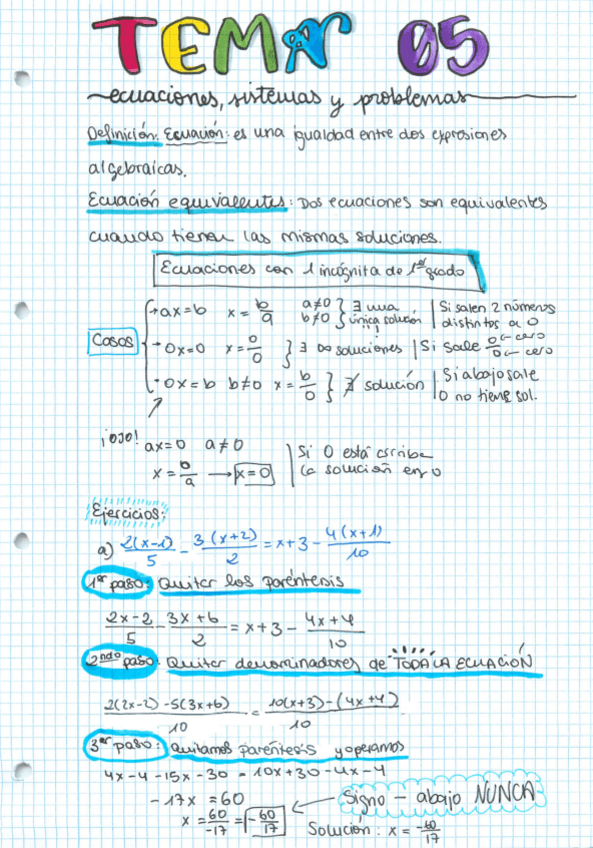 TEMA 05
ecuaciones, sistemas y problemas
Definición: Ecuación: es una igualdad entre dos expresiones
algebraicas.
Ecuación equivalentes: Dos ecuaciones son equivalentes
cuando tienen las mismas soluciones.
Ecuaciones con 1 incógnita de 1er grado
Casos
→ ax=b x = b/a a≠0 b≠0 } ∃ una única solución | Si salen 2 números distintos a 0
· 0x=0 x = 0/0 } ∃ ∞ soluciones | Si sale 0/0 ← cero ← cero
· 0x=b b≠0 x = b/0 } ∄ solución | Si abajo sale 0 no tiene sol.
¡OJO! ax=0 a≠0 | Si 0 está arriba
x = 0/a → x=0 | la solución es 0
Ejercicios:
a) 2(x-1)/5 - 3(x+2)/2 = x+3 - 4(x+1)/10
1er paso: Quitar los paréntesis
2x-2/5 - 3x+6/2 = x+3 - 4x+4/10
2ndo paso: Quitar denominadores de TODA LA ECUACIÓN
2(2x-2) -5(3x+6)/10 = 10(x+3)-(4x+4)/10
3er paso: Quitamos paréntesis y operamos
4x-4-15x-30 = 10x+30-4x-4
-17x = 60
x = 60/-17 = -60/17 ← Signo - abajo NUNCA
Solución: x = -60/17